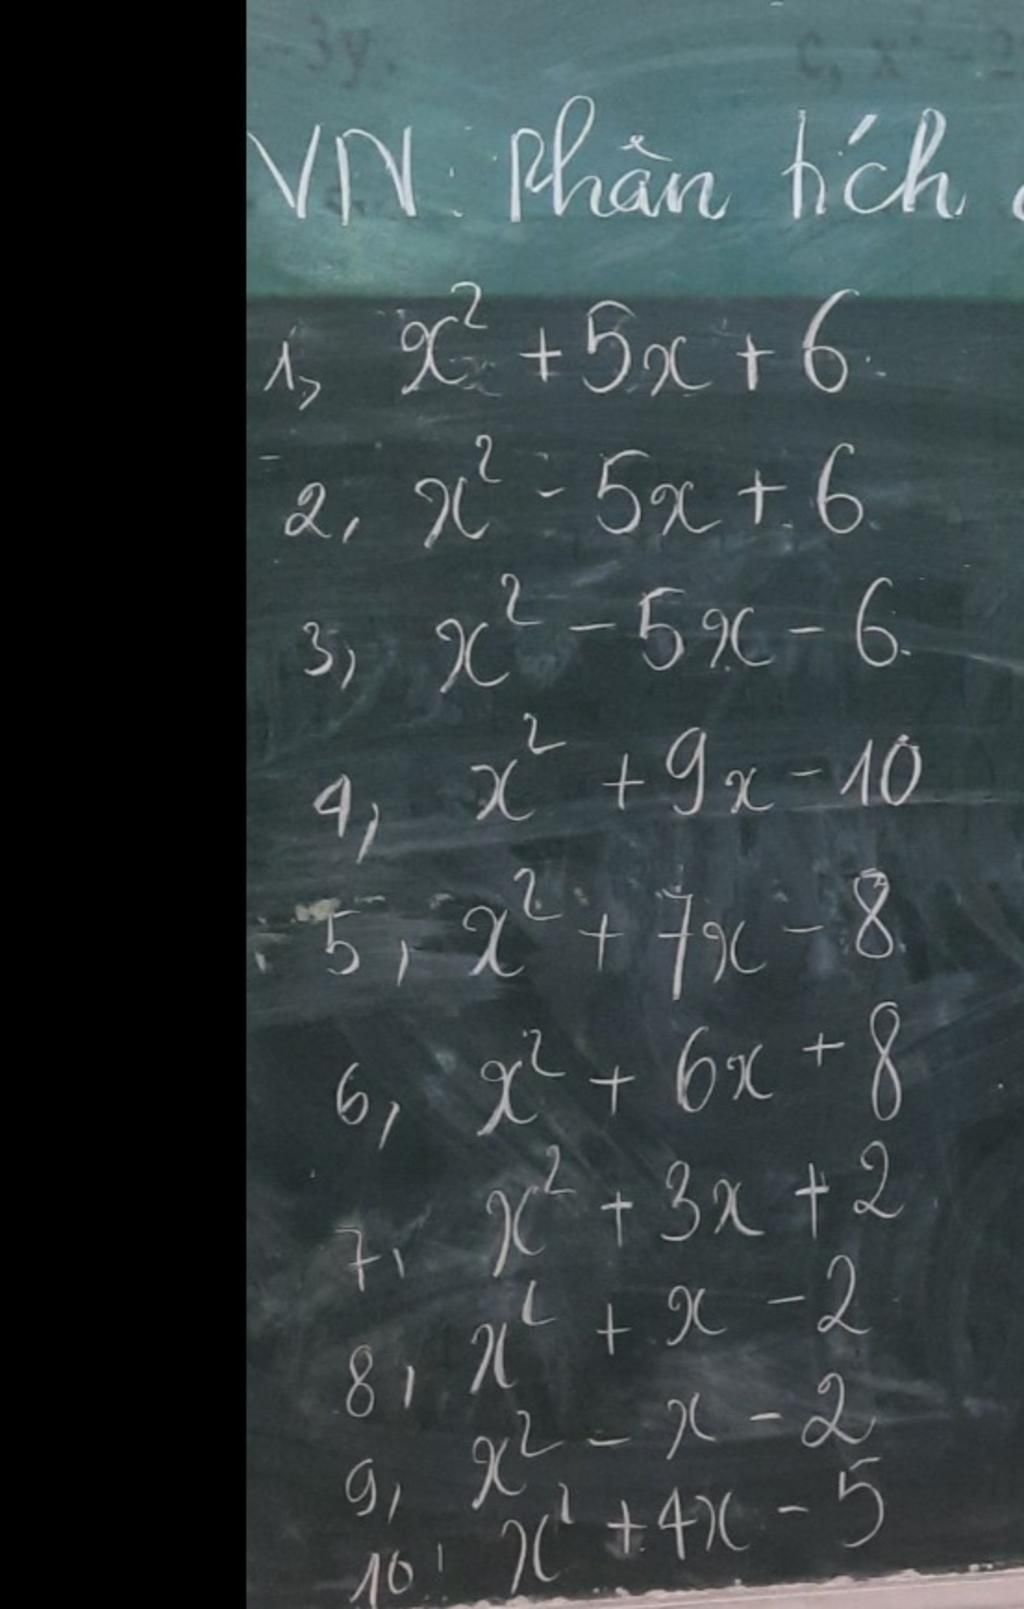 -3y. c, x² - 2
VN: Phân tích
1, x² + 5x + 6
2, x² - 5x + 6
3, x² - 5x - 6
4, x² + 9x - 10
5, x² + 7x - 8
6, x² + 6x + 8
7, x² + 3x + 2
8, x² + x - 2
9, x² - x - 2
10, x² + 4x - 5